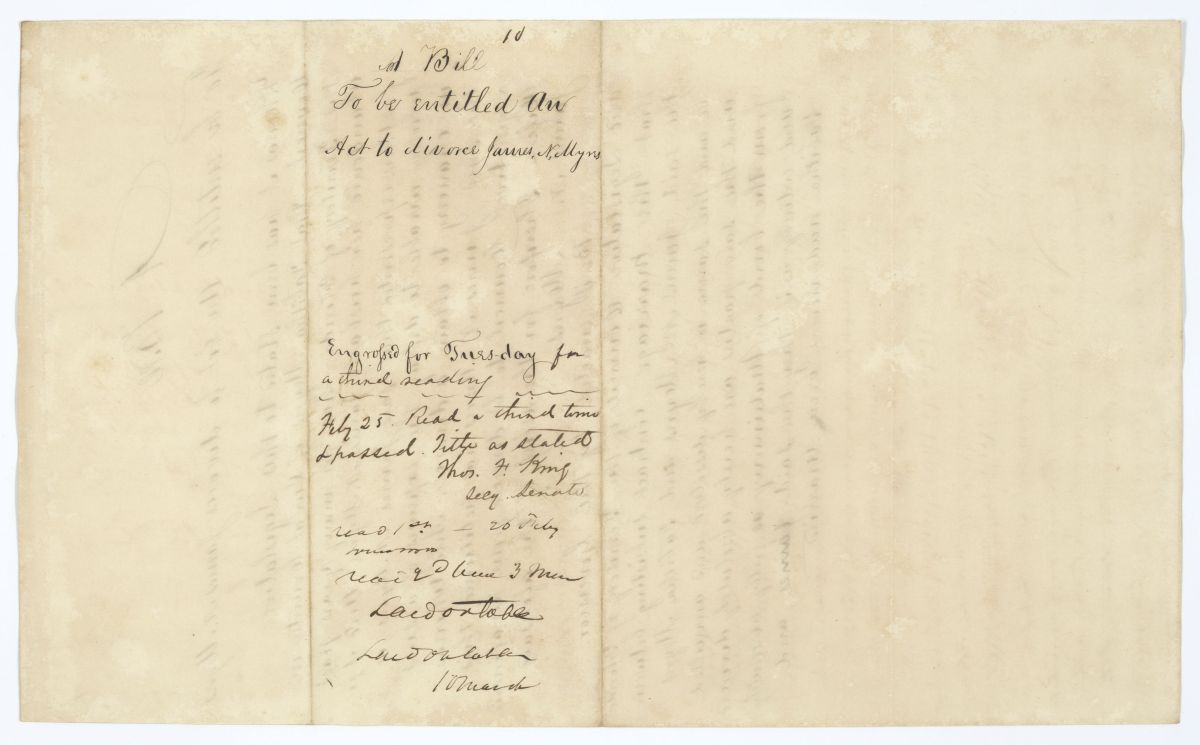 10
A Bill
To be entitled An
Act to divorce James. N. Myrs
Engrossed for Tuesday for
a third reading
Feby 25. Read a third time
& passed. Title as stated
Thos. F. King
Secy. Senate
read 1st — 26 Feby
read 2d time 3 Mar
Laid on table
Laid on table
10 March